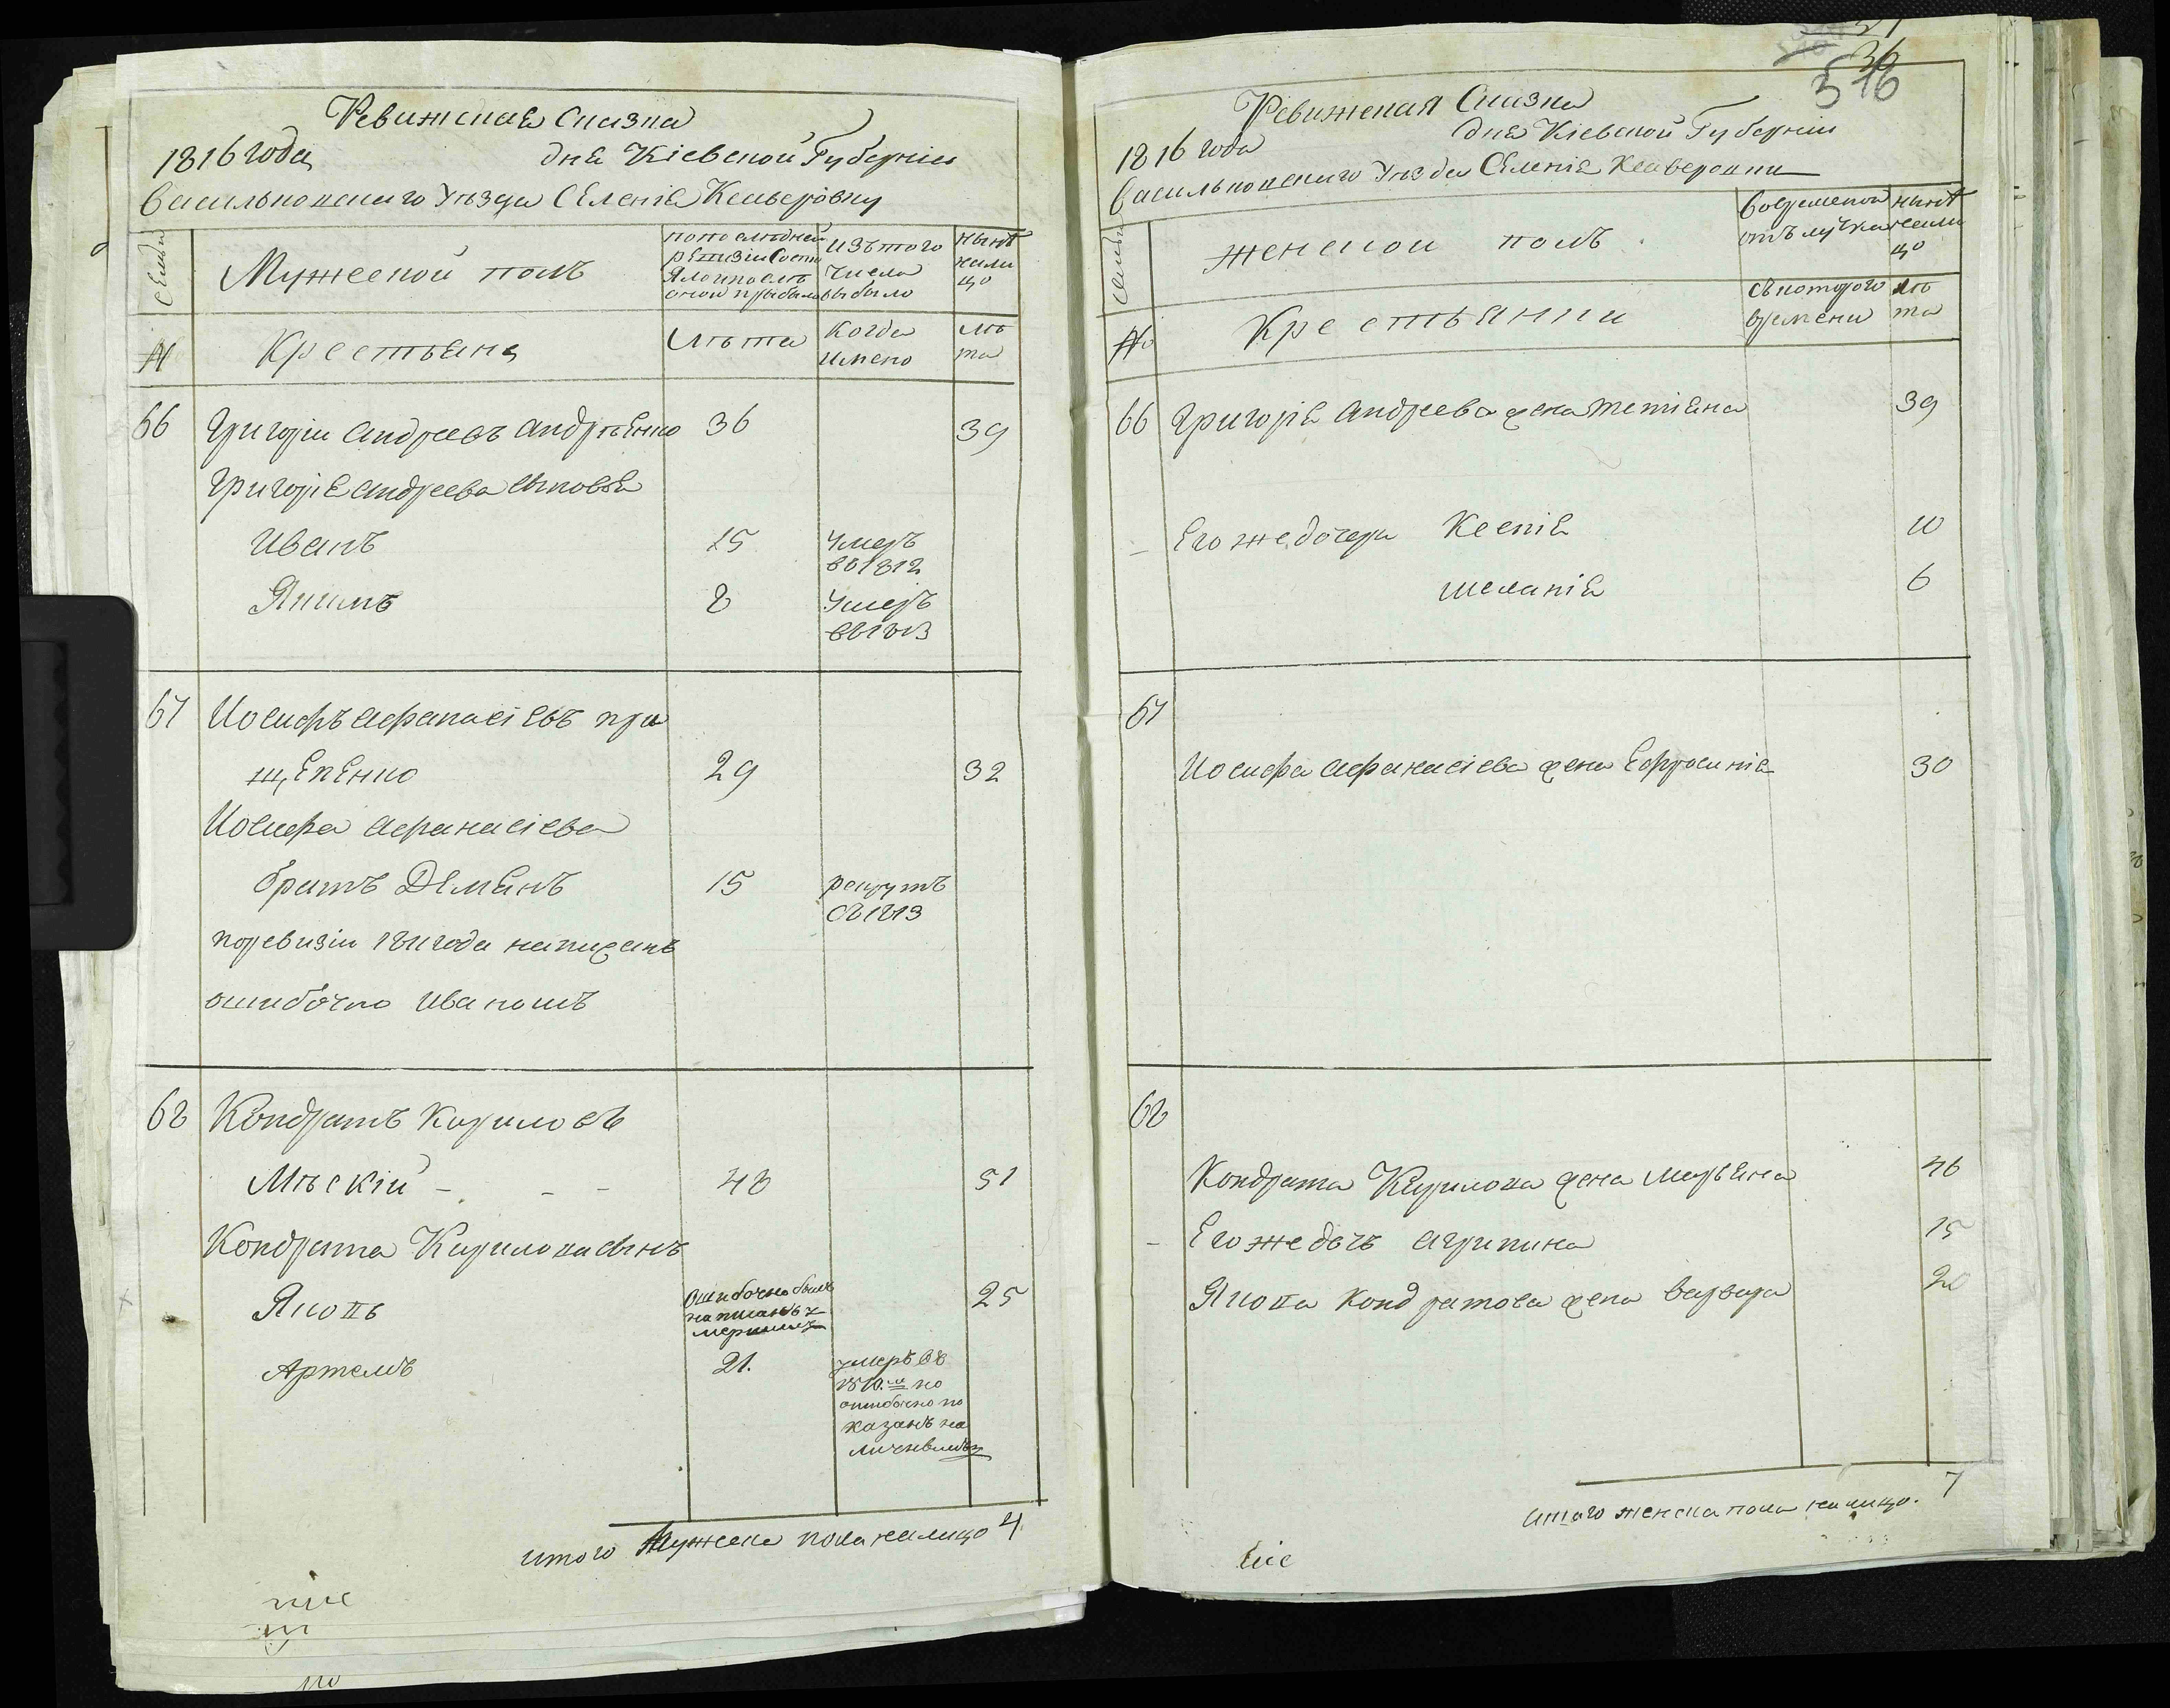 Ревижская Сказка
1816 года дня Кіевской Губерніи
Васильковскаго Уѣзда Селенія Ксаверовку
Семьи
Мужеской полъ
по последней ревизіи состояло и после оной прибыло
изъ того числа выбыло
нынѣ нали цо
№
Крестьяне
Лѣта
Когда имено
лѣ та
66 Григорій Андреевъ Андрѣенко 36 39
Григорія Андреева сыновья
Иванъ 15 Умеръ въ 1812
Якимъ 8 Умеръ въ 1813
67 Иосифъ Афанасіевъ при
щепенко 29 32
Иосифа Афанасіева
братъ Демянъ 15 рекрутъ съ 1813
по ревизіи 1811 года написанъ
ошибочно Иваномъ
68 Кондратъ Кириловъ
Мѣскій - - - 48 51
Кондрата Кирилова сынъ
Яковъ ошибочно былъ написанъ умершимъ 25
Артемъ 21. умеръ въ 1810.м но ошибочно по казанъ на личнвмъ
итого Мужеска пола налицо 4.
36
Ревижская Сказка
1816 года дня Кіевской Губерніи
Васильковскаго Уѣзда Селенія Ксаверовки
Семьи
женской полъ
во временой отълучки
нынѣ нали цо
№
Крестьянки
съ которого времени
лѣ та
66 Григорія Андреева жена Тетіяна 39
- Его же дочери Ксенія 10
Меланія 6
67
Иосифа Афанасіева жена Ефросинія 30
68
Кондрата Кирилова жена Марьяна 46
- Его же дочь Агрипина 15
Якова Кондратова жена Варвара 20
итого женска пола налицо. 7